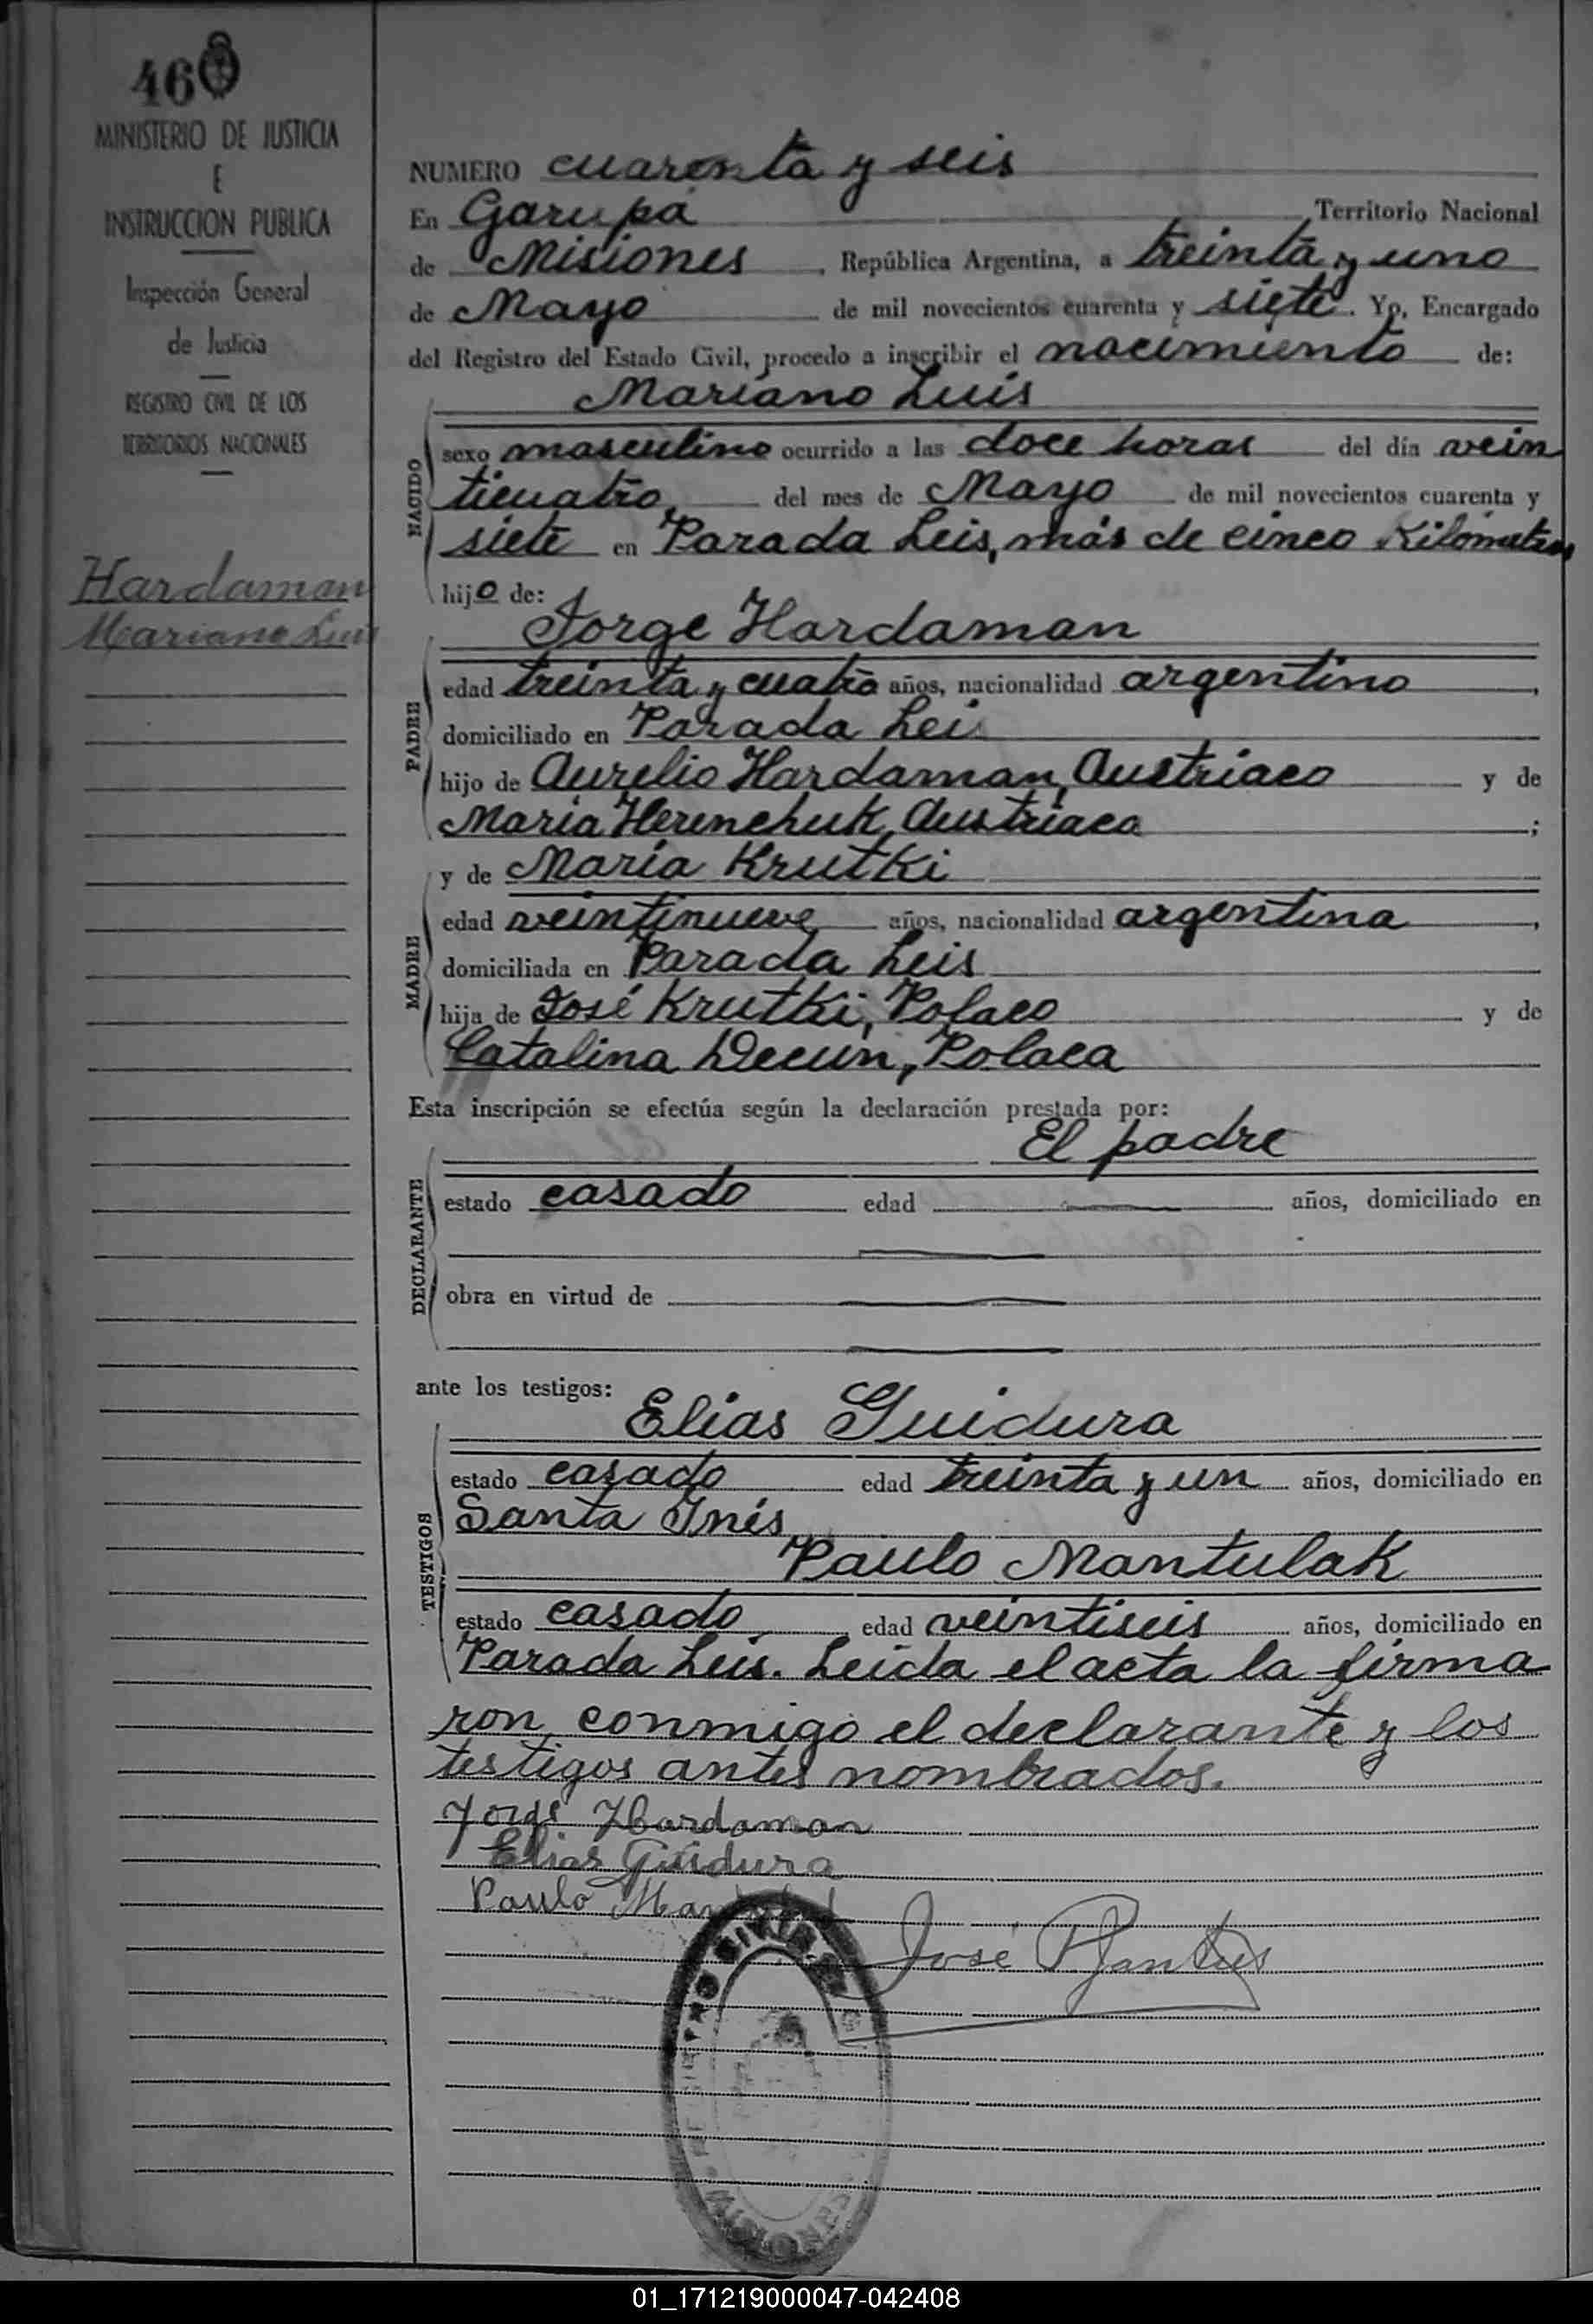 46
MINISTERIO DE JUSTICIA
E
INSTRUCCION PUBLICA
Inspección General
de Justicia
REGISTRO CIVIL DE LOS
TERRITORIOS NACIONALES
Hardaman
Mariano Luis
NUMERO cuarenta y seis
En Garupá Territorio Nacional
de Misiones, República Argentina, a treinta y uno
de Mayo de mil novecientos cuarenta y siete. Yo, Encargado
del Registro del Estado Civil, procedo a inscribir el nacimiento de:
Mariano Luis
NACIDO
sexo masculino ocurrido a las doce horas del día vein
ticuatro, del mes de Mayo de mil novecientos cuarenta y
siete en Parada Leis, más de cinco Kilómetros
hijo de:
Jorge Hardaman
PADRE
edad treinta y cuatro años, nacionalidad argentino,
domiciliado en Parada Leis
hijo de Aurelio Hardaman, Austriaco y de
María Herenchuk, Austriaca;
y de María Krutki
MADRE
edad veintinueve años, nacionalidad argentina,
domiciliada en Parada Leis
hija de José Krutki, Polaco y de
Catalina Decun, Polaca
Esta inscripción se efectúa según la declaración prestada por:
El padre
DECLARANTE
estado casado edad años, domiciliado en
obra en virtud de
ante los testigos:
Elias Guidura
TESTIGOS
estado casado edad treinta y un años, domiciliado en
Santa Inés
Paulo Mantulak
estado casado, edad veintiseis años, domiciliado en
Parada Leis. Leida el acta la firma
ron conmigo el declarante y los
testigos antes nombrados.
Jorge Hardaman
Elias Guidura
Paulo
José
01_171219000047-042408